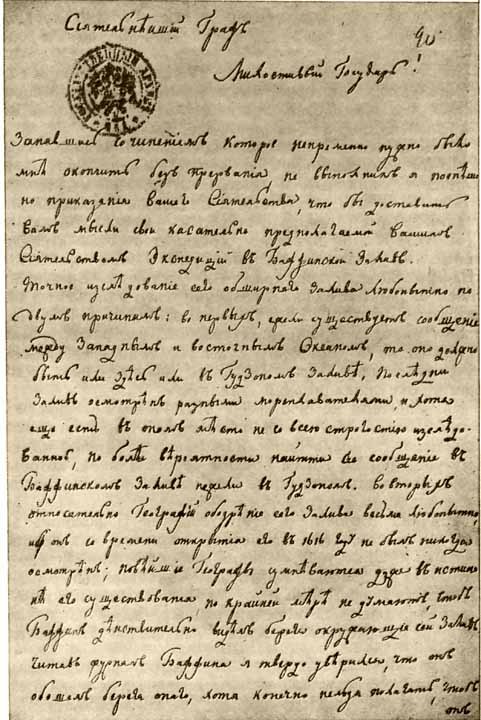 Сіятельнѣйшій Графъ
Милостивый Государь!
Занявшись сочиненіемъ которое непременно нужно было
мнѣ окончить безъ прерванія не выполнилъ я поспѣшно
приказанія Вашего Сіятельства, что бы доставить
Вамъ мысли свои касательно предполагаемой Вашимъ
Сіятельствомъ Экспедиціи въ Баффинской Заливъ.
Точное изслѣдованіе сего обширнаго Залива любопытно по
двумъ причинамъ: во первыхъ, если существуетъ сообщеніе
между Западнымъ и восточнымъ Океаномъ, то оно должно
быть или здѣсь или въ Гудзономъ Заливѣ, Послѣдній
Заливъ осмотрѣнъ разными мореплавателями, и хотя
еще есть въ ономъ мѣсто не со всею строгостію изслѣдо-
ванное, но болѣе вѣроятности найти сіе сообщеніе въ
Баффинскомъ Заливѣ нежели въ Гудзономъ. Вовторыхъ
относительно Географіи обозрѣніе сего Залива весьма любопытно,
ибо онъ со времени открытія его въ 1616 году не былъ никогда
осмотрѣнъ; новѣйшіе Географы сумнѣваются даже въ истин-
нѣ его существованія по крайней мѣрѣ не думаютъ, чтобъ
Баффинъ дѣйствительно видѣлъ берега окружающіе сей Заливъ
читавъ журналъ Баффина я твердо увѣрился, что онъ
обошелъ берега онаго, хотя конечно нельзя полагать, чтобъ
онъ